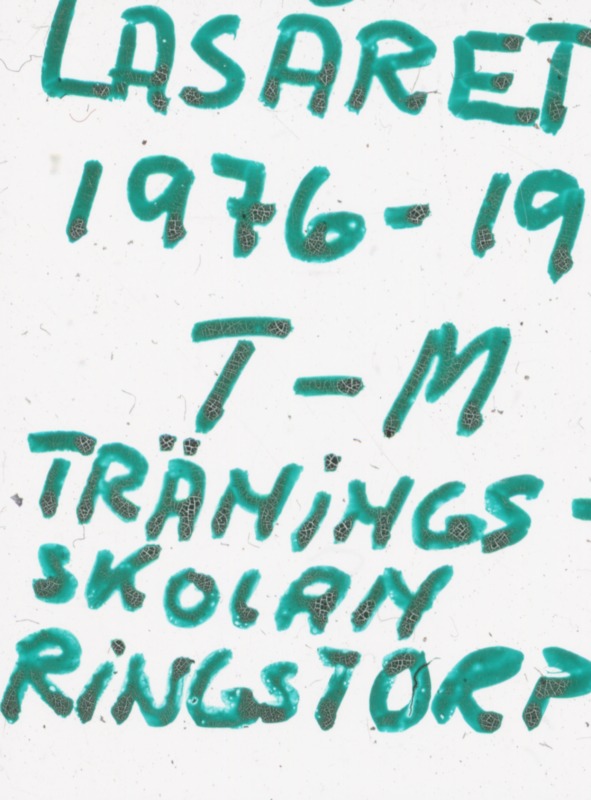 LÄSÅRET
1976-19
T-M
TRÄNINGS-
SKOLAN
RINGSTORP